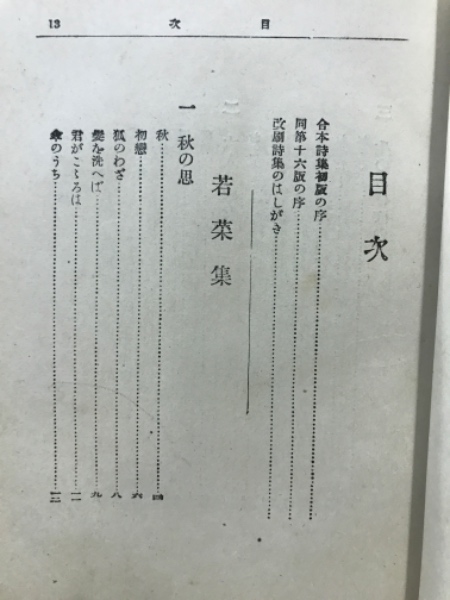 13 次 目
目次
合本詩集初版の序
同第十六版の序
改刷詩集のはしがき
若菜集
一 秋の思
秋 四
初戀 六
狐のわざ 八
髮を洗へば 九
君がこゝろは 一一
傘のうち 一二